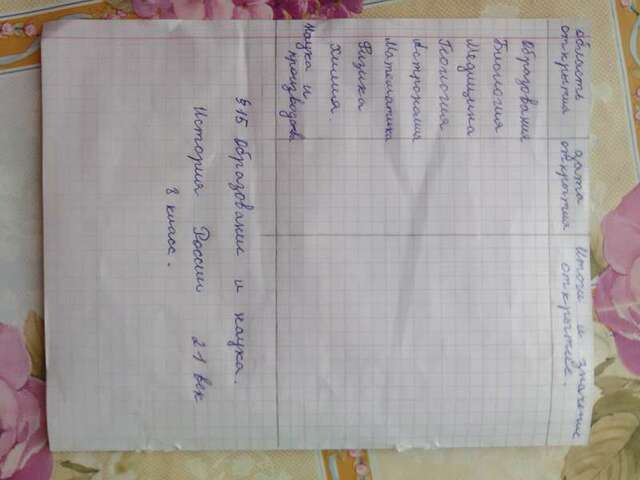 Область дата Итоги и значение
открытия открытия открытие.
Образования
Биология
Медицина
Геология
Астрономия
Математика
Физика
Химия.
Наука и
производова
§15 Образование и наука.
История России 21 век
8 класс.